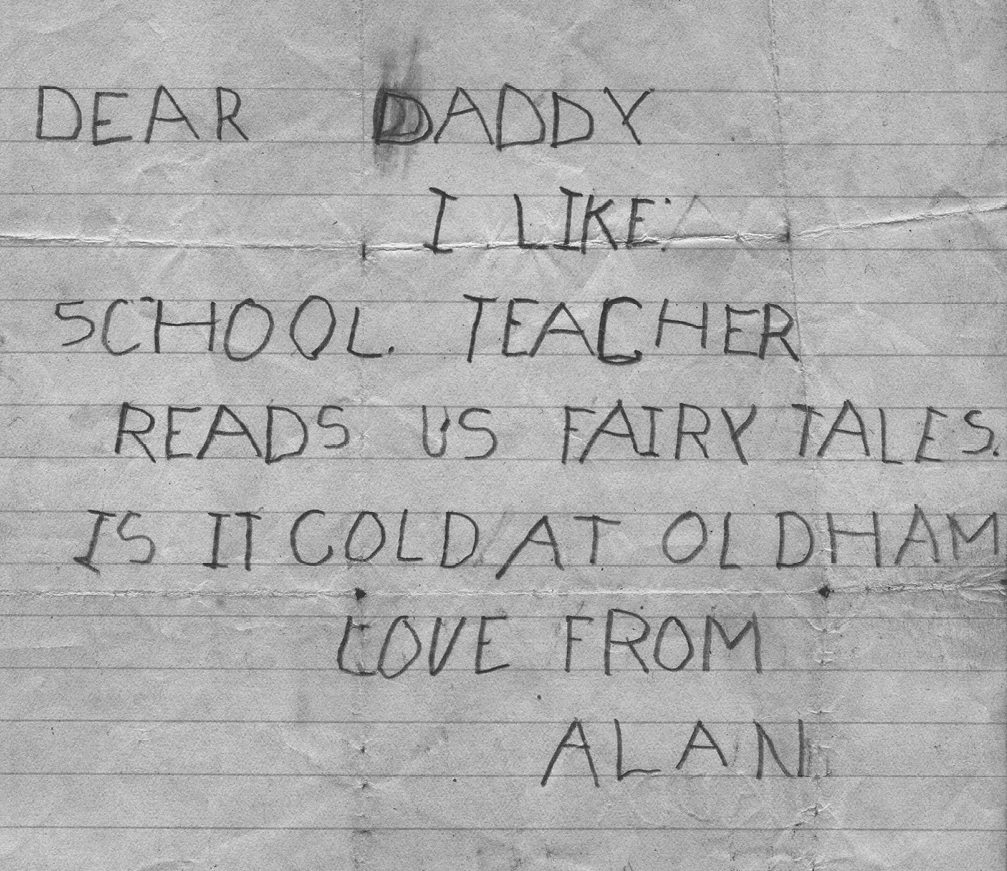 DEAR DADDY
I LIKE
SCHOOL. TEACHER
READS US FAIRY TALES.
IS IT COLD AT OLDHAM
LOVE FROM
ALAN